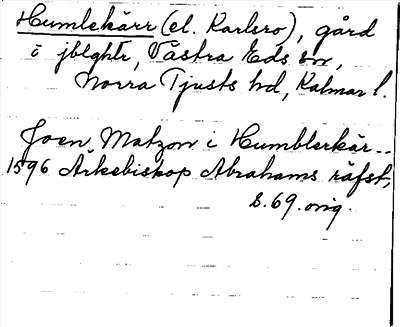 Humlekärr (el. Karlsro), gård
i jblghtr, Västra Eds sn,
Norra Tjusts hd, Kalmar l.
Joen Matzon i Humblerkär..
1596 Arkebiskop Abrahams räfst,
s. 69. orig.